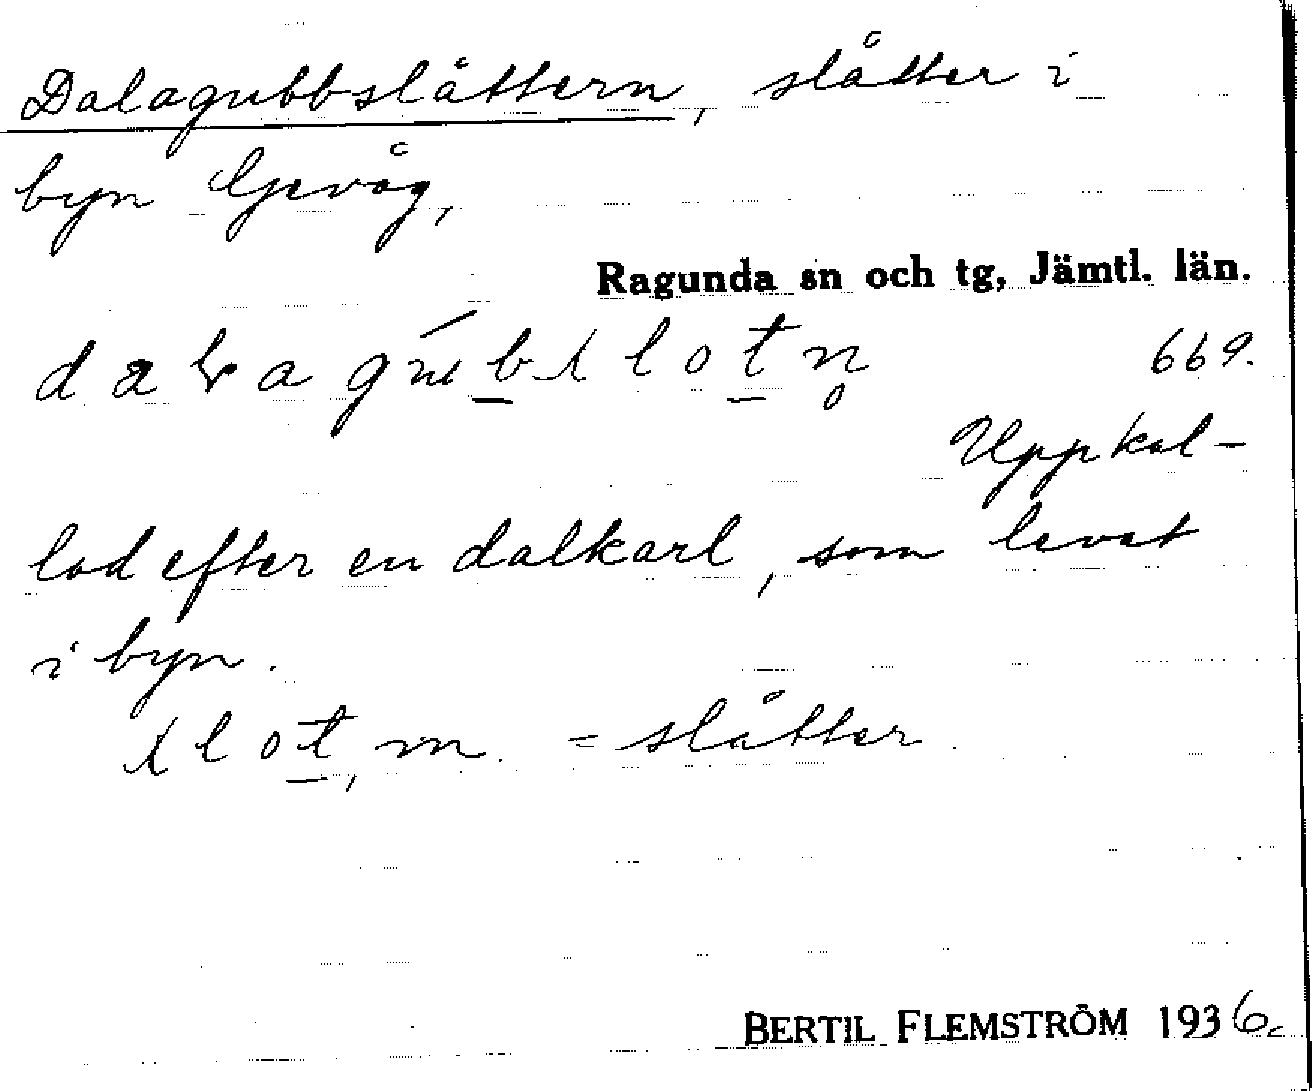 Dalagubbslåttern, slåtter i
byn Gevåg,
Ragunda sn och tg, Jämtl. län.
669.
Uppkal-
lad efter en dalkarl, som levat
i byn.
= slåtter
BERTIL FLEMSTRÖM 1936.